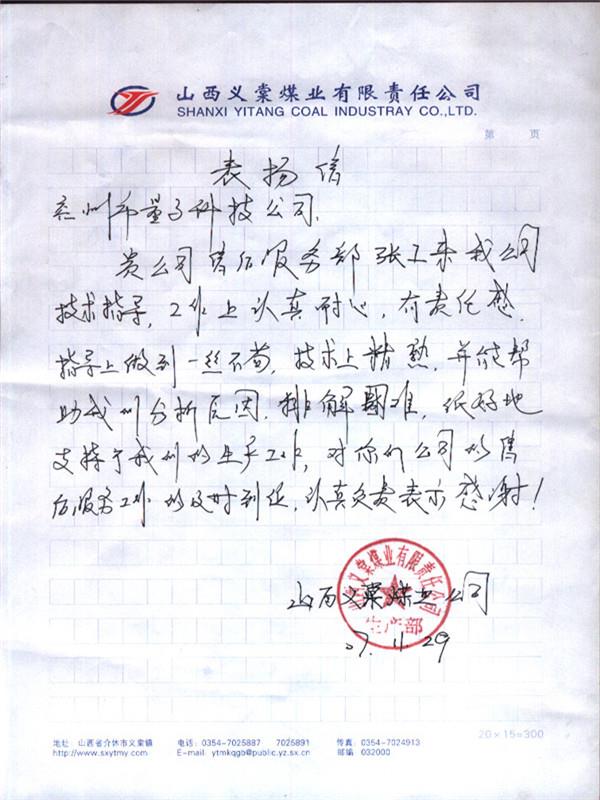 山西义棠煤业有限责任公司
SHANXI YITANG COAL INDUSTRAY CO.,LTD.
第 页
表扬信
兰州市量子科技公司.
贵公司售后服务部张工来我公司
技术指导,工作上认真耐心,有责任感.
指导上做到一丝不苟,技术上精熟,并能帮
助我们分析原因.排解困难,很好地
支持了我们的生产工作,对你们公司的售
后服务工作的及时到位,认真负责表示感谢!
山西义棠煤业有限责任公司
生产部
山西义棠煤业公司
07.11.29
20×15=300
地址:山西省介休市义棠镇 电话:0354-7025887 7025891 传真:0354-7024913
http://www.sxytmy.com E-mail: ytmkqgb@public.yz.sx.cn 邮编:032000